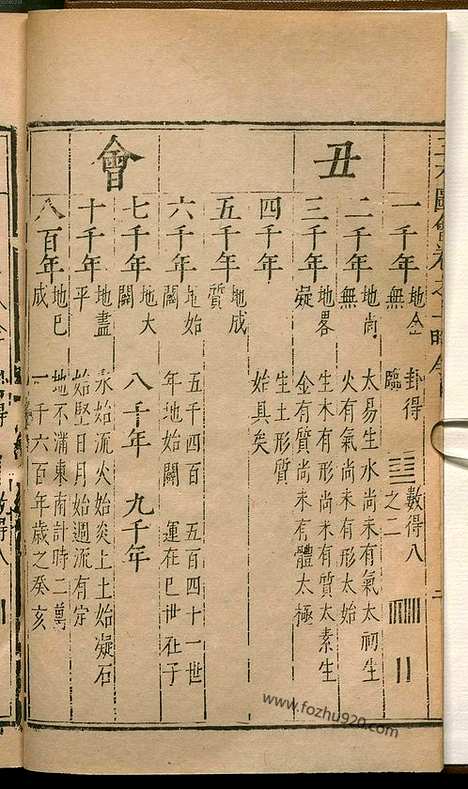 丑會
一千年 地全無 卦得臨 數得八之二
二千年 地尚無 太易生水尚未有氣太初生
火有氣尚未有形太始
三千年 地畧凝 生木有形尚未有質太素生
金有質尚未有體太極
四千年 生土形質
始具矣
五千年 地成質
六千年 地始闢 五千四百年地始闢 五百四十一世運在巳世在子
七千年 地大闢 八千年 九千年
十千年 地盡平 水始流火始炎上土始凝石
始堅日月始週流有定
八百年 地已成 地不滿東南計時二萬
一千六百年歲之癸亥
www.fozhu920.com